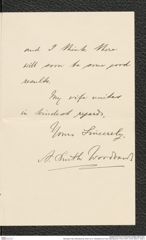 and I think there
will soon be some good
results.
My wife unites
in kindest regards,
Yours Sincerely,
A. Smith Woodward